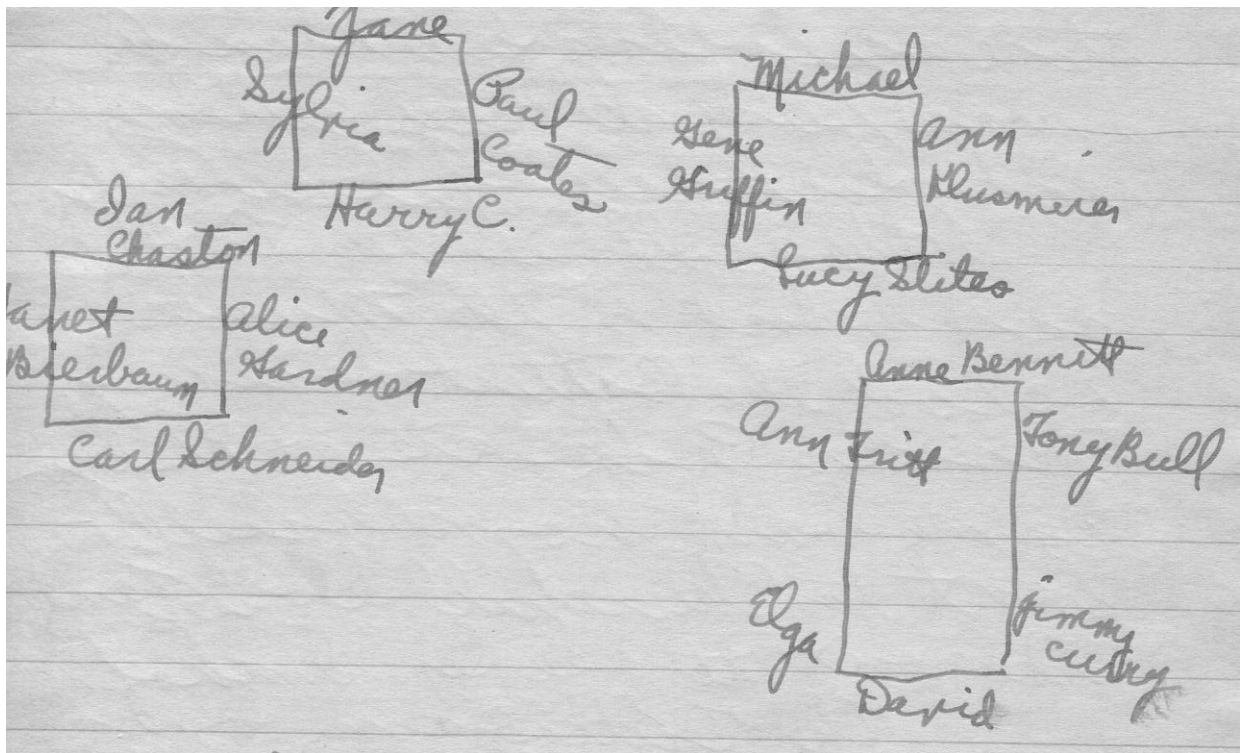 Jane
Sylvia
Paul
Coates
Harry C.
Michael
Gene
Griffin
Ann
Klusmeier
Lucy Stites
Ian
Chaston
Janet
Bierbaum
Alice
Gardner
Carl Schneider
Anne Bennett
Ann Fritt
Tony Bull
Elga
Jimmy
Curry
David